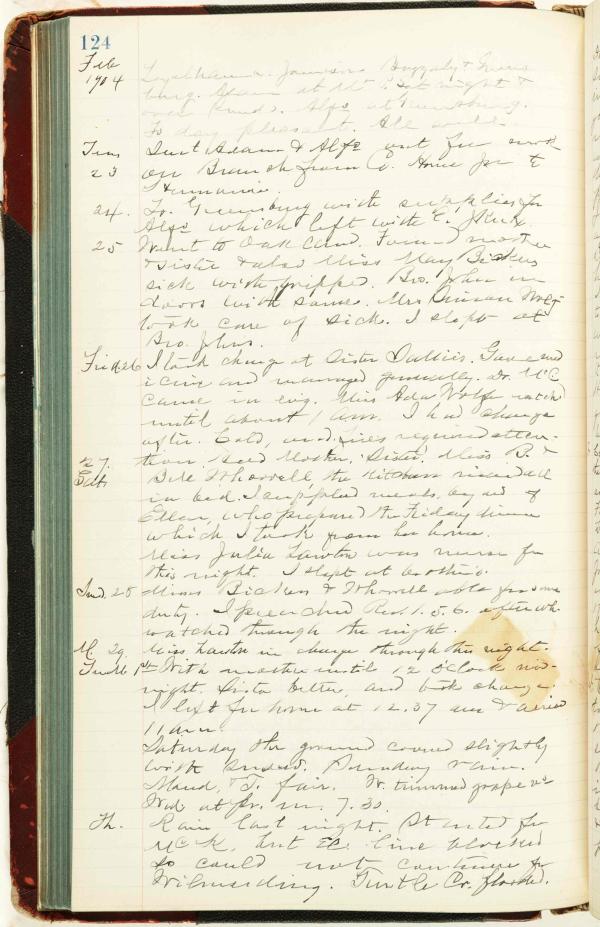 124
Feb
1904
burg. at night &
over Sund. Alfs at
To day pleasant. All well.
Tues Sent Adam & Alfs out for work
23 on Branch from Co. Home Jn to
24. To Greensburg with supplies for
Alfs which left with E.
25 Went to Oakland. Found mother
& Sister & also Miss May Bickers
sick with grippe. Bro. John in
doors with same. Mrs
took care of sick. I slept at
Bro. Johns.
Frid 26 I took charge at Sister Sallies. Gave med
icine and managed generally. Dr. McC
came in evg. Miss Ada Wolfe watched
until about 1 am. I had charge
after. Cold, and fires required atten-
27. tion. Mother, Sister, Miss B. &
Sat. Whorrell, the
in bed. I supplied meals by aid of
Ellen, who prepared the Friday dinner
which I took from her home.
Miss Julia Lawton was nurse for
this night. I slept at brothers.
Sund. 28 Misses Bickers & Whorrell able for some
duty. I preached Rev. 1. 5. 6. after wh.
watched through the night.
M. 29 Miss Lawton in charge through this night.
Tues Mch 1st With mother until 12 O'Clock mid-
night. Sister better, and took charge.
I left for home at 12.37 am & arrived
1 am.
Saturday the ground covered slightly
with snow. Sunday rain.
Mond, & T. fair. W. trimmed grape vs
Wed at pr. m. 7.30.
Th. Rain last night. Started for
McK, but El. line blocked
so could not continue for
Wilmerding. Turtle Cr. flooded.